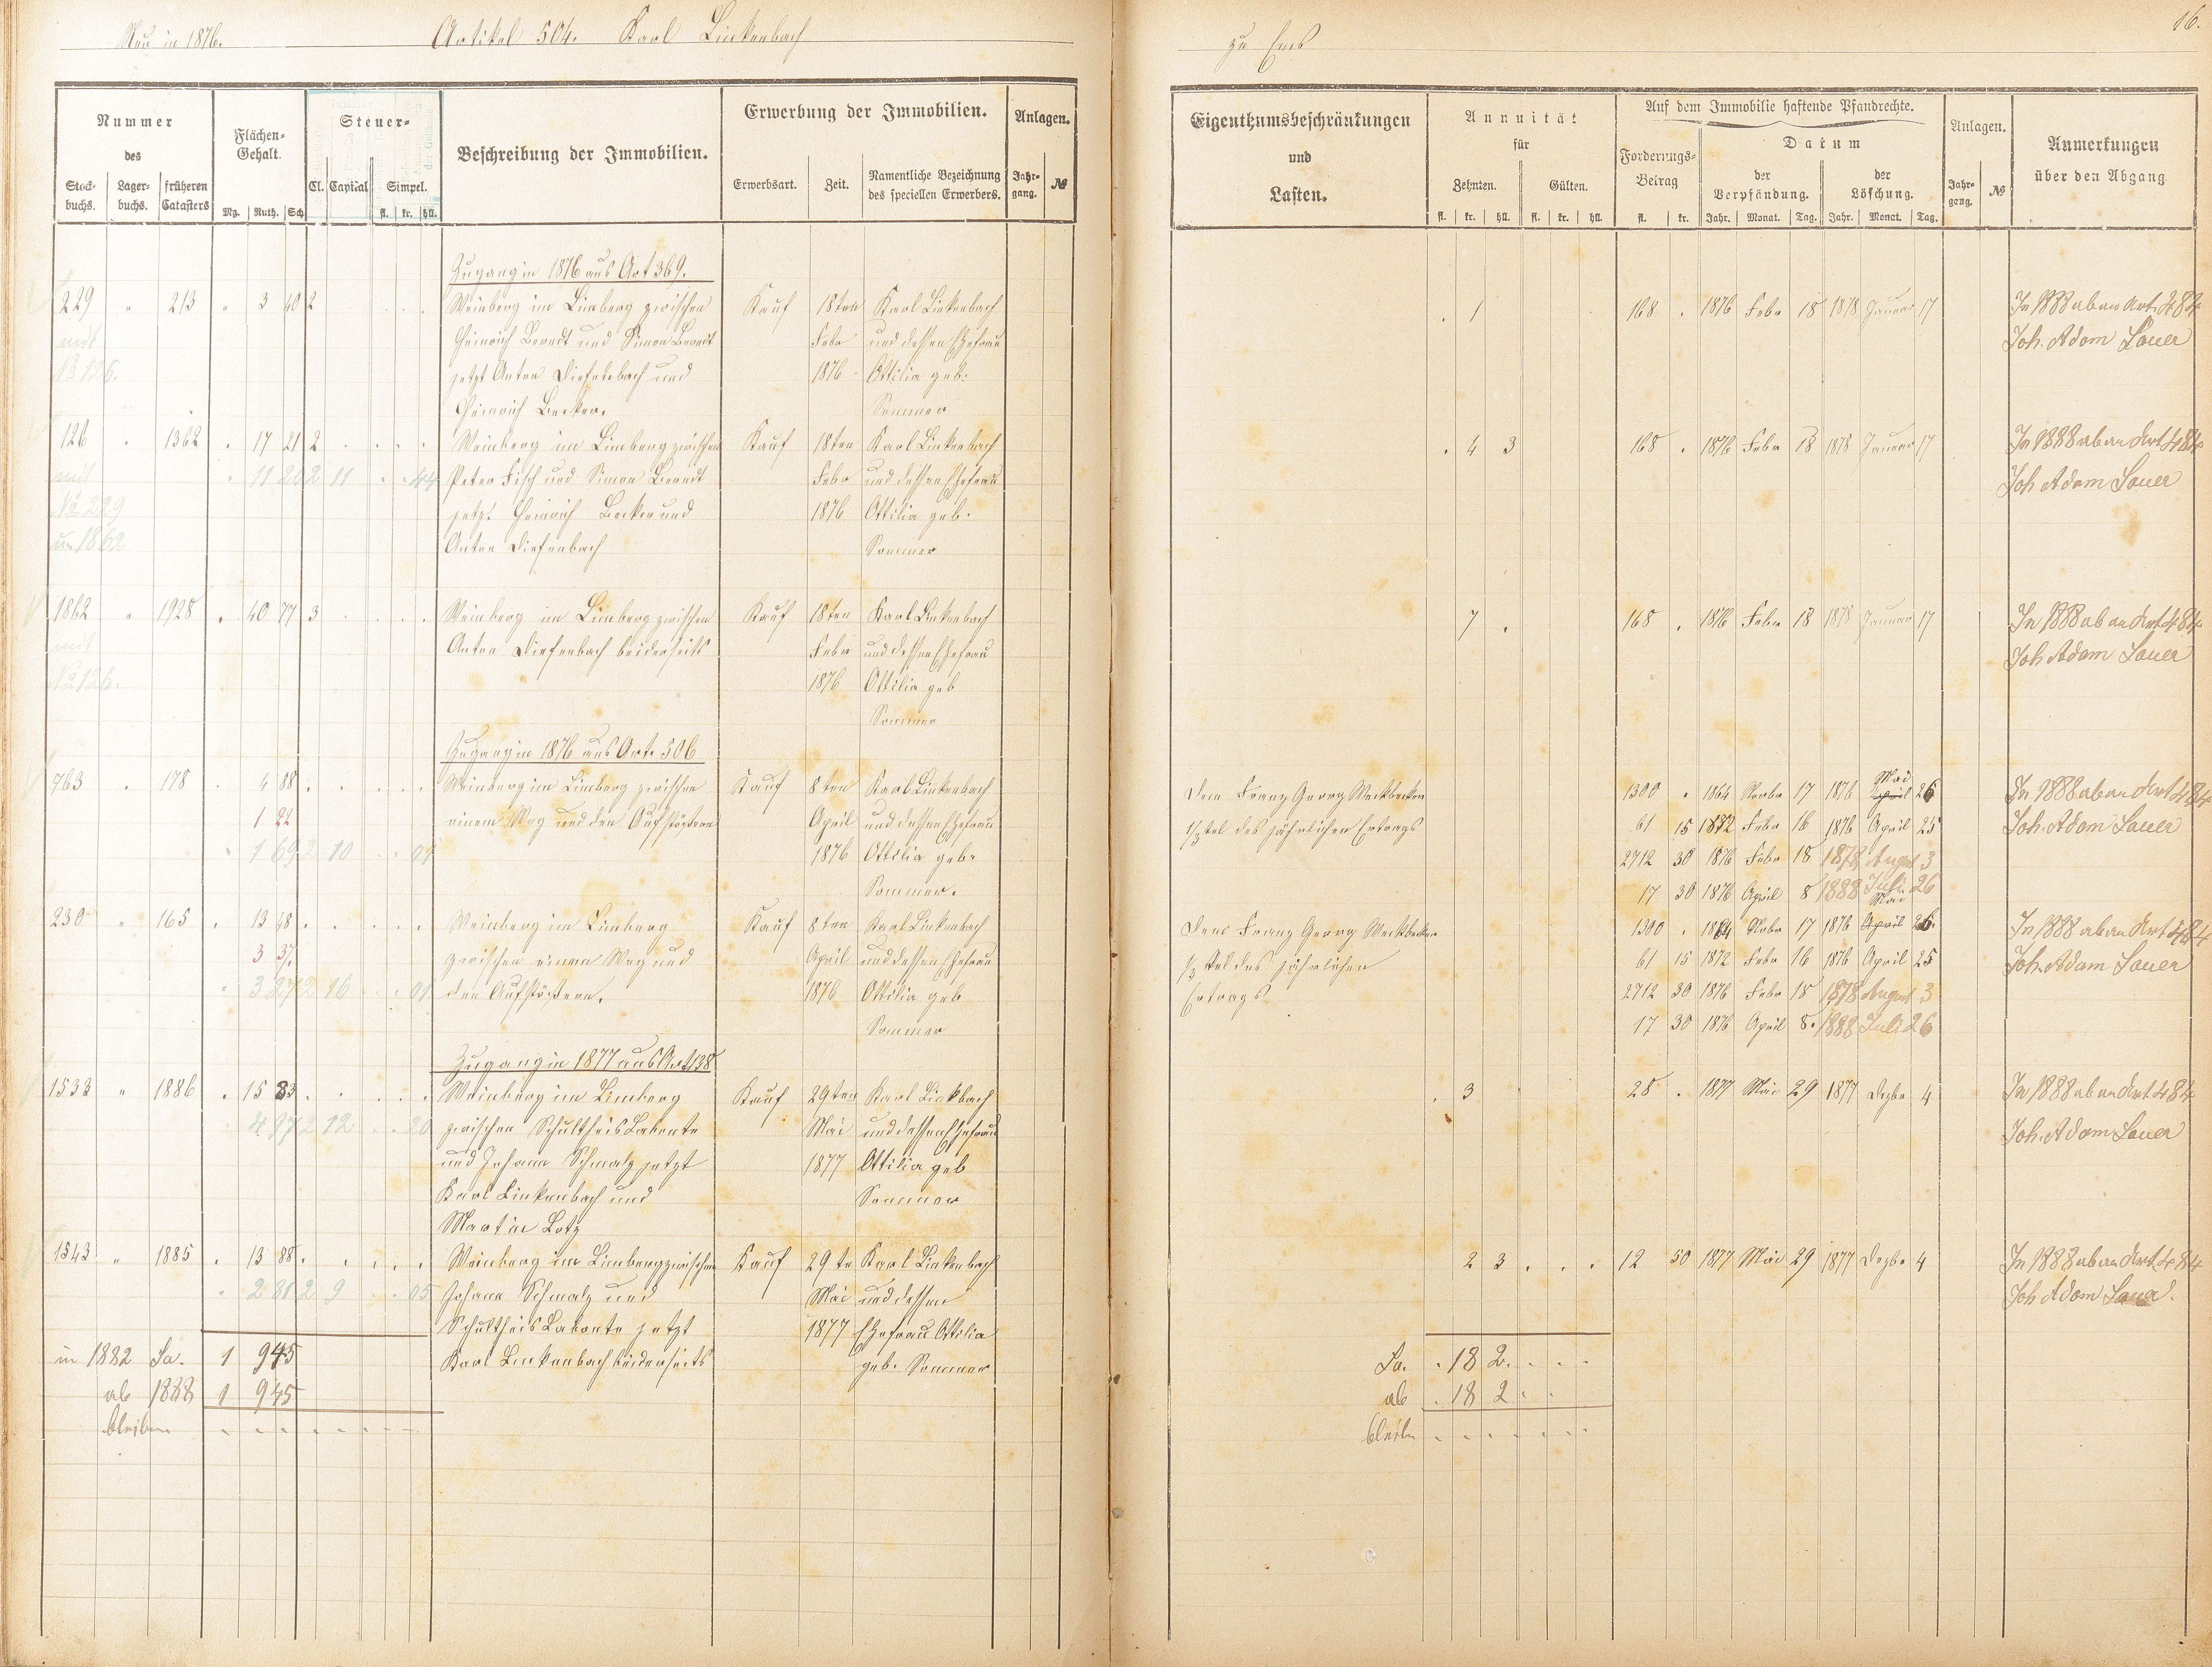 Neu in 1876.
Artikel 504. Karl Linkenbach
zu Ems
16.
Nummer
des
Stock-buchs.
Lager-buchs.
früheren Catasters
Flächen-Gehalt.
Mg. Ruth. Sch.
Steuer-
Cl. Capital Simpel.
fl. kr. hll.
Beschreibung der Immobilien.
Erwerbung der Immobilien.
Erwerbsart. Zeit. Namentliche Bezeichnung des speciellen Erwerbers.
Anlagen.
Jahr-gang. №
Eigenthumsbeschränkungen
und
Lasten.
Annuität
für
Zehnten. Gülten.
fl. kr. hll. fl. kr. hll.
Auf dem Immobilie haftende Pfandrechte.
Forderungs-Betrag
fl. kr.
Datum
der Verpfändung. der Löschung.
Jahr. Monat. Tag. Jahr. Monat. Tag.
Anlagen.
Jahr-gang. №
Anmerkungen
über den Abgang
Zugang in 1876 aus Art 369.
229 " 213 " 3 40 2 Weinberg im Limberg zwischen Kauf 18ten Karl Linkenbach . 1 168 . 1876 Febr 18 1878 Januar 17 In 1888 ab an Art. 484
mit Heinrich Berndt und Simon Berndt Febr und dessen Ehefrau Joh. Adam Sauer
№ 126. jetzt Anton Diefenbach und 1876 Ottilia geb.
Heinrich Becker. Sommer
126 " 1362 . 17 21 2 Weinberg im Limberg zwischen Kauf 18ten Karl Linkenbach . 4 3 168 . 1876 Febr 18 1878 Januar 17 In 1888 ab an Art 484
mit 11 20 2 11 44 Peter Fisch und Simon Berndt Febr und dessen Ehefrau Joh Adam Sauer
№ 229 jetzt Heinrich Becker und 1876 Ottilia geb.
un 1862 Anton Diefenbach Sommer
1862 " 1928 . 40 77 3 Weinberg im Limberg zwischen Kauf 18ten Karl Linkenbach 7 . 168 . 1876 Febr 18 1878 Januar 17 In 1888 ab an Art 484
mit Anton Diefenbach beiderseits Febr und dessen Ehefrau Joh Adam Sauer
№ 126. 1876 Ottilia geb
Sommer
Zugang in 1876 aus Art. 506
763 . 178 . 4 88 Weinberg im Limberg zwischen Kauf 8ten Karl Linkenbach Dem Franz Georg Weckbecker 1300 . 1864 Novbr 17 1876 April Mai 26 In 1888 ab an Art 484
1 22 einem Weg und den Aufstößern April und dessen Ehefrau 1/3tel des jährlichen Ertrags 61 15 1872 Febr 16 1876 April 25 Joh. Adam Sauer
1 69 2 10 07 1876 Ottilia geb. 2712 30 1876 Febr 18 1878 August 3
Sommer. 17 30 1876 April 8 1888 Juli 26
230 " 165 . 13 48 Weinberg im Limberg Kauf 8ten Karl Linkenbach Dem Franz Georg Weckbecker 1300 . 1864 Novbr 17 1876 April Mai 26. In 1888 ab an Art 484
3 37. zwischen einem Weg und April und dessen Ehefrau 1/3 tel des jährlichen 61 15 1872 Febr 16 1876 April 25 Joh. Adam Sauer
3 27 2 16 01 den Aufstößern. 1876 Ottilia geb Ertrags 2712 30 1876 Febr 18 1878 August 3
Sommer 17 30 1876 April 8. 1888 Juli 26
Zugang in 1877 aus Art 138
1533 " 1886 . 15 83 Weinberg im Limberg Kauf 29ten Karl Linkbach . 3 28 . 1877 Mai 29 1877 Dezbr 4 In 1888 ab an Art 484
4 97 2 12 20 zwischen Schultheis Labonte Mai und dessen Ehefrau Joh. Adam Sauer
und Johann Schmalz jetzt 1877 Ottilia geb
Karl Linkenbach und Sommer
Martin Lotz
1543 " 1885 . 13 88 Weinberg im Limberg zwischen Kauf 29te Karl Linkenbach 2 3 12 50 1877 Mai 29 1877 Dezbr 4 In 1888 ab an Art 484
2 81 2 9 05 Johann Schmalz und Mai und dessen Joh Adam Sauer.
Schultheis Labonte jetzt 1877 Ehefrau Ottilia
in 1882 Sa. 1 9 45 Karl Linkenbach beiderseits geb. Sommer Sa. . 18 2.
ab 1888 1 9 45 ab . 18 2
bleiben bleibn